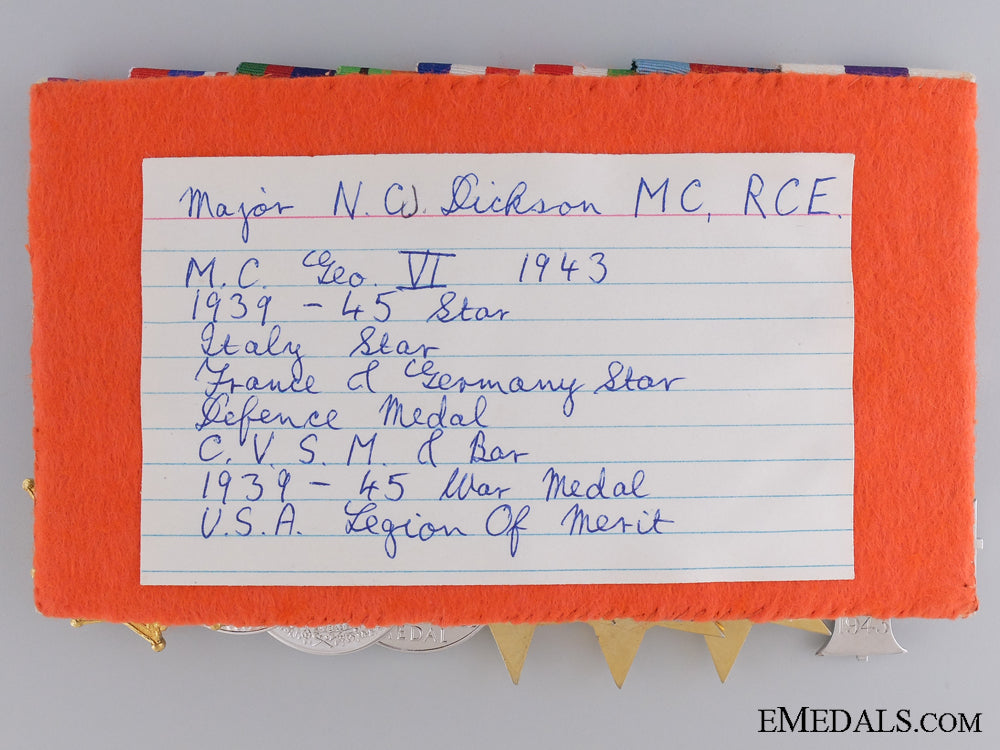 Major N. W. Dickson MC, RCE.
M.C. Geo. VI 1943
1939 - 45 Star
Italy Star
France & Germany Star
Defence Medal
C. V. S. M. & Bar
1939 - 45 War Medal
U.S.A. Legion Of Merit
MEDAL
1943
EMEDALS.COM